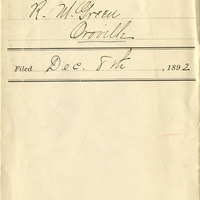 R. M. Green
Oroville
Filed Dec. 8th, 1892